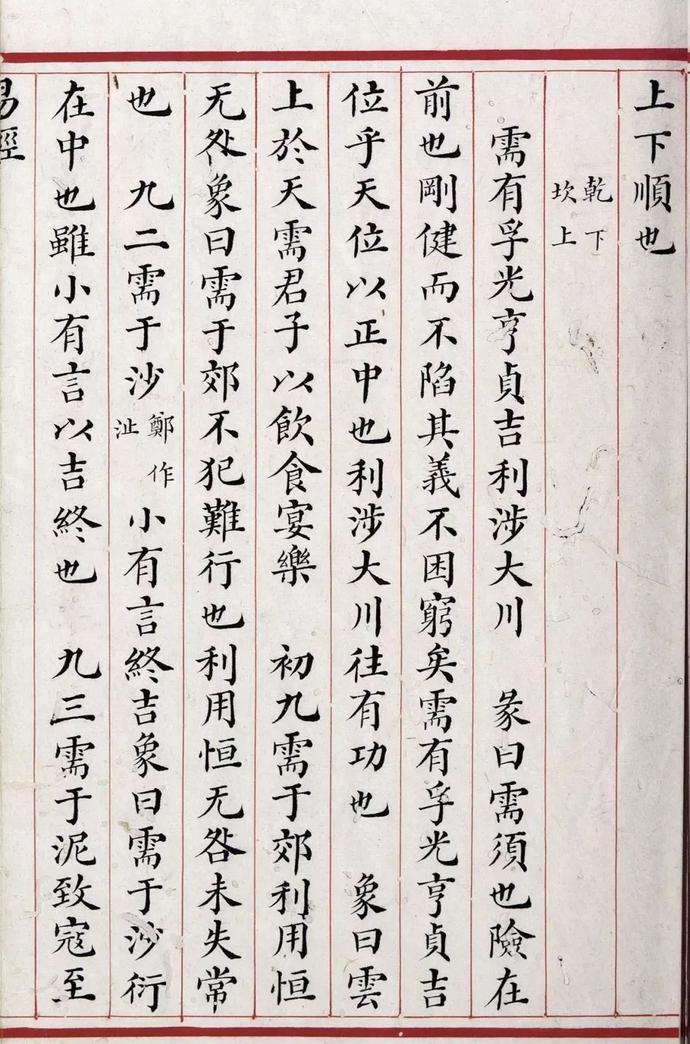 上下順也
乾下
坎上
需有孚光亨貞吉利涉大川 彖曰需須也險在
前也剛健而不陷其義不困窮矣需有孚光亨貞吉
位乎天位以正中也利涉大川往有功也 象曰雲
上於天需君子以飲食宴樂 初九需于郊利用恒
无咎象曰需于郊不犯難行也利用恒无咎未失常
也 九二需于沙鄭作沚小有言終吉象曰需于沙衍
在中也雖小有言以吉終也 九三需于泥致寇至
易經